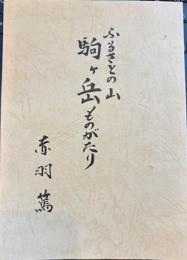 ふるさとの山
駒ヶ岳ものがたり
赤羽篤